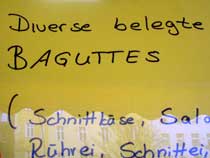 Diverse belegte
BAGUTTES
( Schnittkäse, Sala
Rührei, Schnittei,